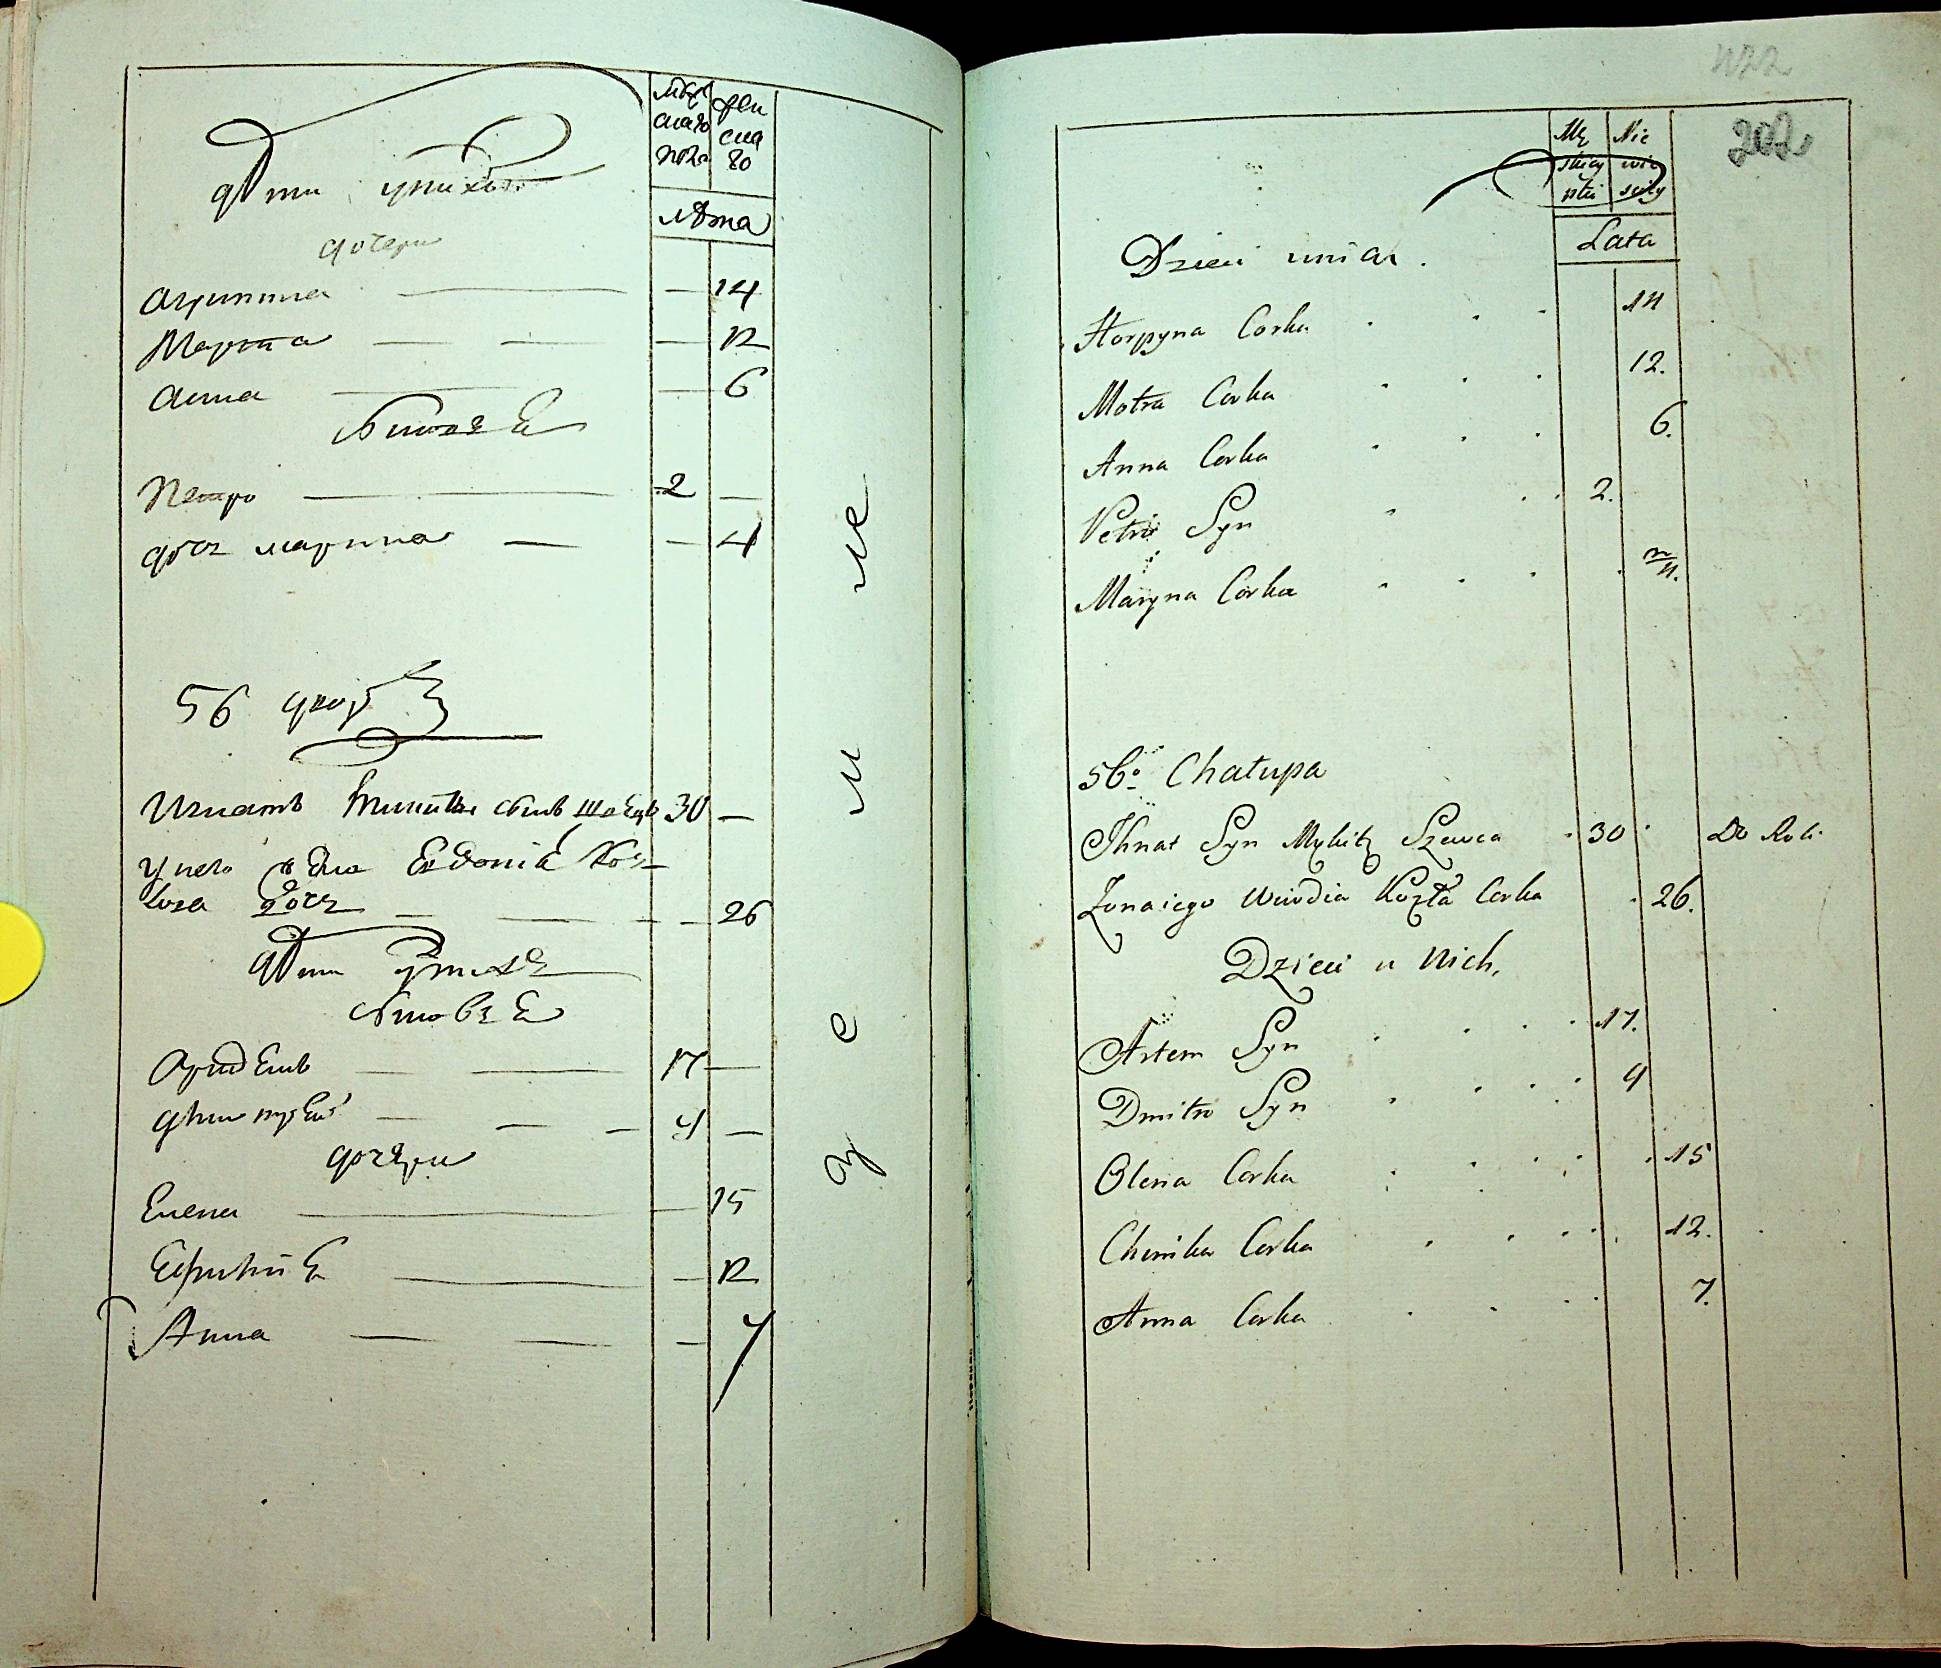 Мужеска пола
женска го
Лѣта
дѣти у нихъ
дочери
Агрипина — — 14
Мартa — — — 12
Анна — — 6
Синовѣ
Петро — 2 —
дочъ марина — — 4
56 дворъ
Игнатъ Микиты синъ Шевцъ 30 —
У него жена Евдокия Коз-
ла дочъ — — — 26
дѣти у нихъ
Синовѣ
Артемъ — — 17 —
Димитрей — — — 4 —
дочери
Елена — — 15
Ефимия — — 12
Анна — — — 7
202
Mę skiey płci
Nie wie sciey
Lata
Dzieci u nich.
Horpyna Corka 14
Motra Corka 12.
Anna Corka 6.
Petro Syn 2.
Maryna Corka 4.
56. Chałupa
Ihnat Syn Mykity Szewca 30 Do Roli
Żona iego Wiwdia Kozła Corka 26.
Dzieci u Nich,
Artem Syn 17.
Dmitro Syn 4
Olena Corka 15
Chimka Corka 12.
Anna Corka 7.